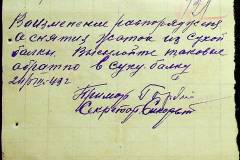 131
В изменение распоряжения
о снятии жаток из сухой
балки. Высылайте таковые
обратно в суху балку
24/VII-43 г
Секретарь